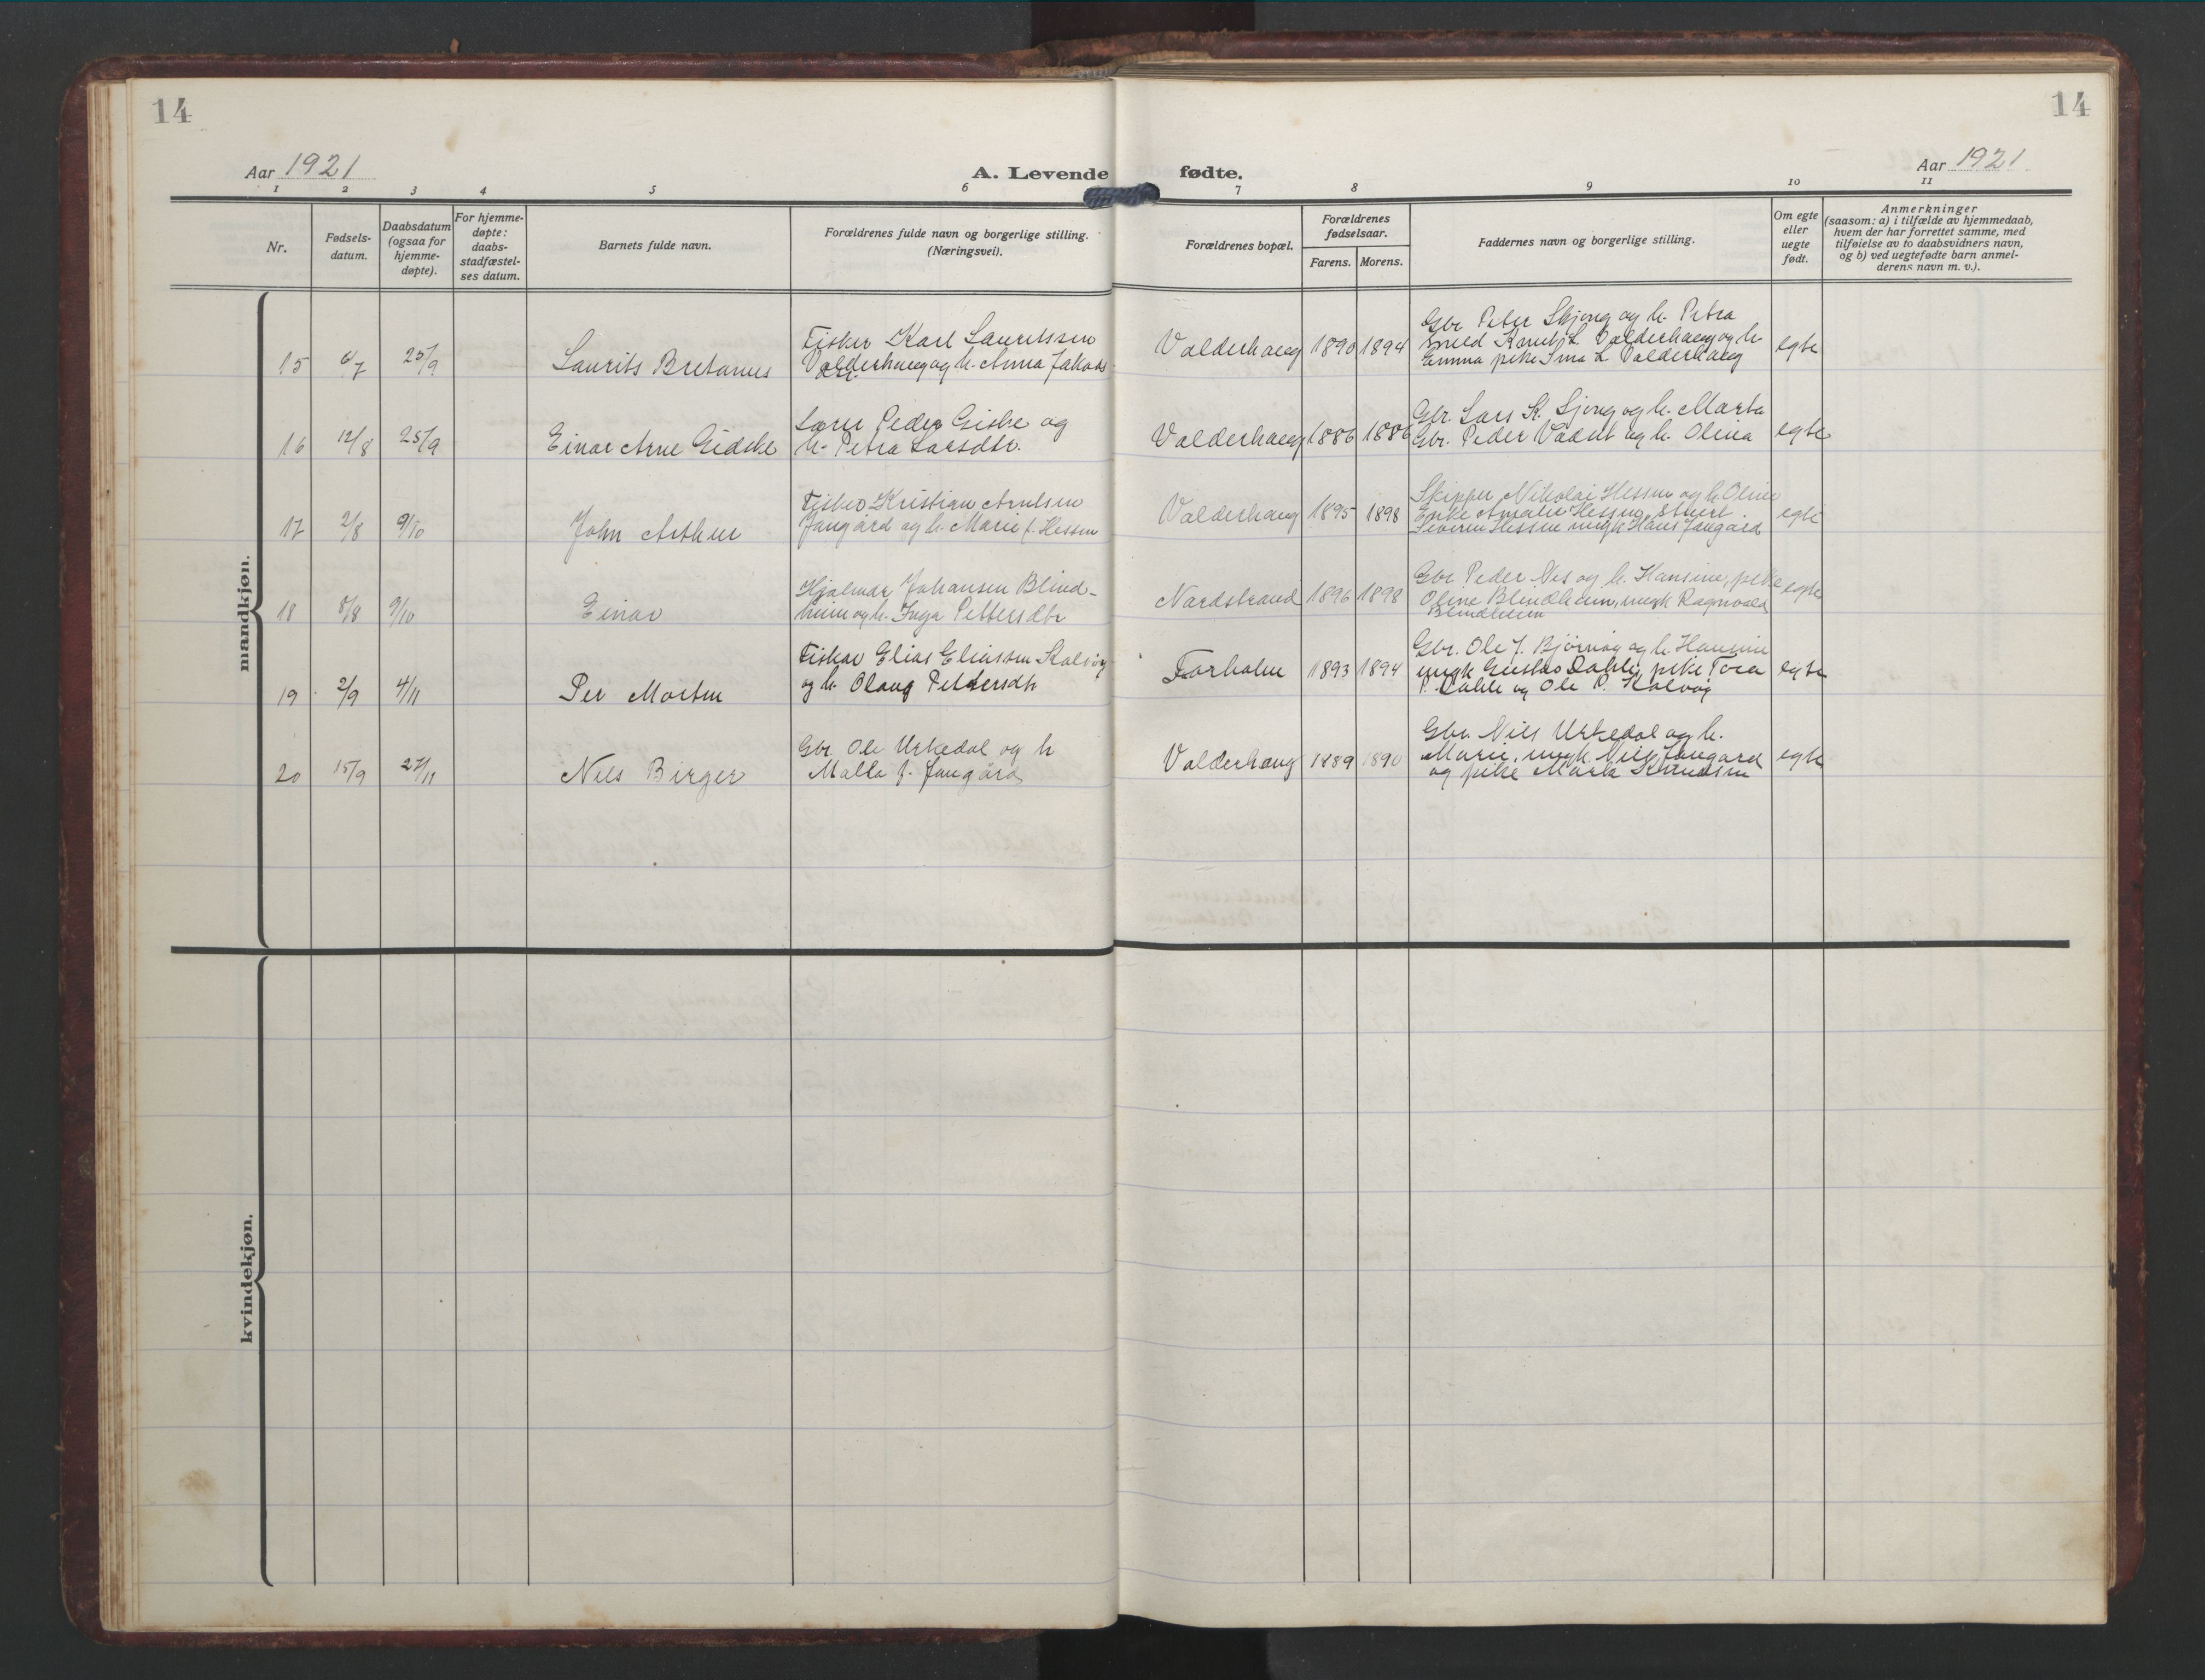 14
14
Aar 1921
A. Levende fødte.
Aar 1921
1 2 3 4 5 6 7 8 9 10 11
Nr.
Fødsels-
datum.
Daabsdatum
(ogsaa for
hjemme-
døpte).
For hjemme-
døpte:
daabs-
stadfæstel-
ses datum.
Barnets fulde navn.
Forældrenes fulde navn og borgerlige stilling.
(Næringsvei).
Forældrenes bopæl.
Forældrenes
fødselsaar.
Farens. Morens.
Faddernes navn og borgerlige stilling.
Om egte
eller
uegte
født.
Anmerkninger
(saasom: a) i tilfælde av hjemmedaab,
hvem der har forrettet samme, med
tilføielse av to daabsvidners navn,
og b) ved uegtefødte barn anmel-
derens navn m. v.).
mandkjøn.
15 6/7 25/9 Laurits Bretanus
Fisker Karl Lauritssen
Valderhaug og h. Anna Jakobs
Valderhaug 1890 1894
Gbr. Peter Skjong og h. Petra
Knut L Valderhaug og h.
Emma pike Ima L Valderhaug
egte
16 12/8 25/9 Einar Arne Gidske
Lærer Peder Giske og
h. Petra Larsdtr.
Valderhaug 1886 1886
Gbr. Lars K. Sjong og h. Marta
Gbr. Peder Vadset og h. Olina
egte
17 2/8 9/10 John Arthur
Fisker Kristian Arntsen
Jangård og h. Marie f. Hessen
Valderhaug 1895 1898
Skipper Nikolai Hessen og h. Oline
Enke Amalie Hessen
Severin Hessen ungk Hans Jangård
egte
18 8/8 9/10 Einar
Hjalmar Johansen Blind-
heim og h. Inga Pettersdtr
Nordstrand 1896 1898
Gbr. Peder Nes og h. Hansine, pike
Oline Blindheim, ungk Ragnvald
Blindheim
egte
19 2/9 4/11 Per Morten
Fisker Elias Eliassen Kalvøy
og h. Olaug Pettersdtr
Farholm 1893 1894
Gbr. Ole J. Bjørnøy og h. Hansine
ungk Gustav Dahle, pike Tora
P. Dahle og Ole P. Kalvøy
egte
20 15/9 27/11 Nils Birger
Gbr. Ole Urkedal og h
Malla f. Jangård
Valderhaug 1889 1890
Gbr. Nils Urkedal og h.
Marie, ungk. Nils Jangård
og pike Marta Knudsen
egte
kvindekjøn.